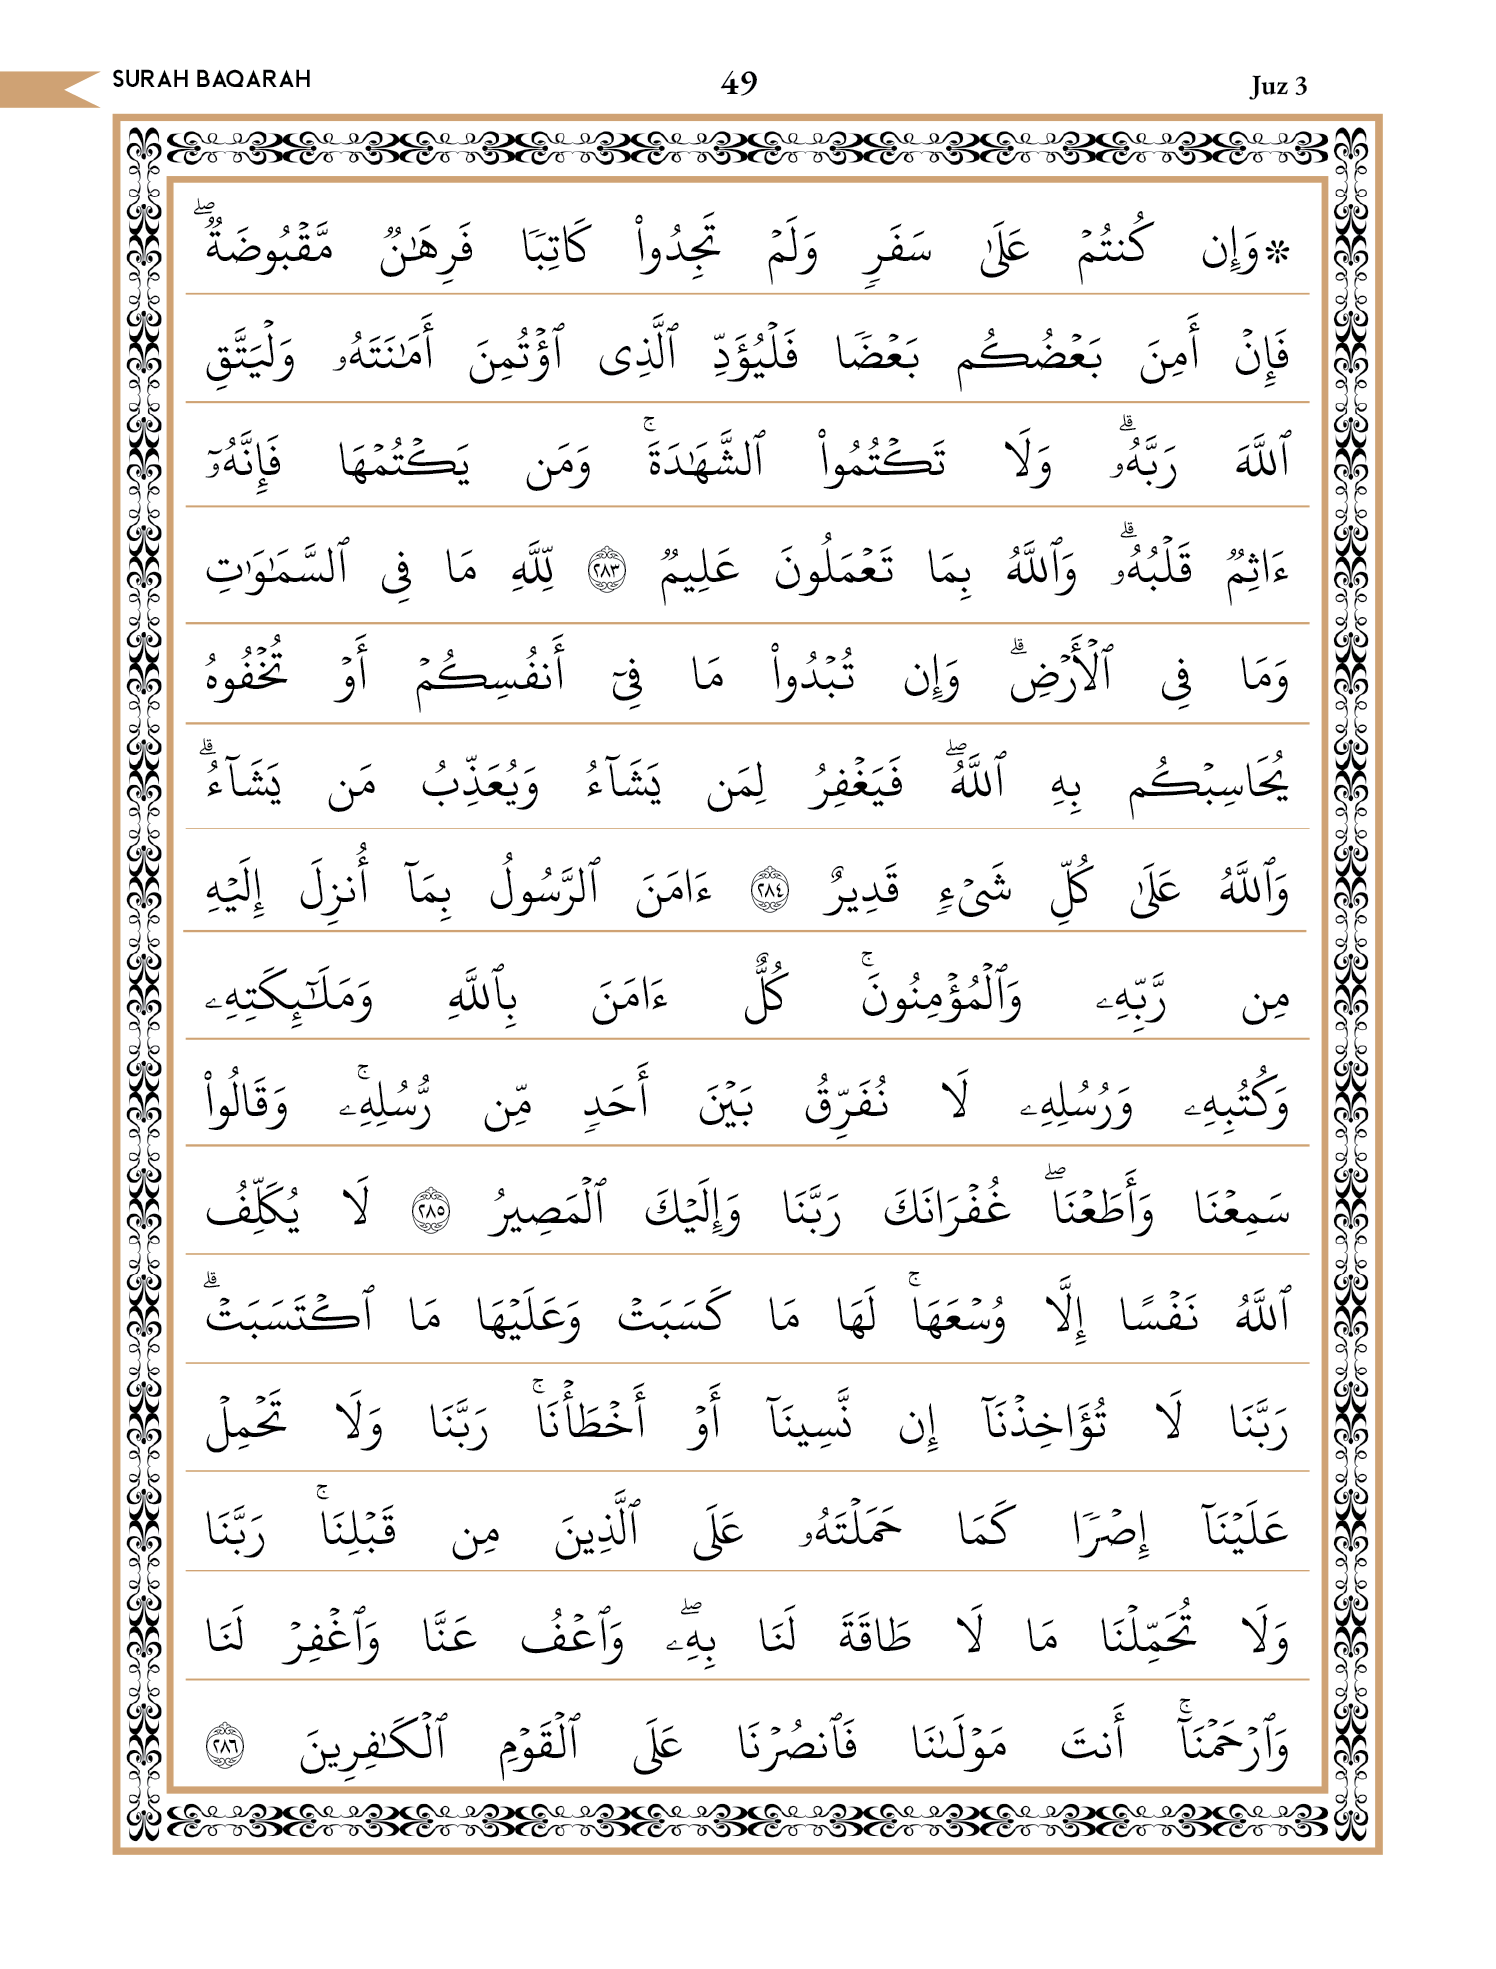 SURAH BAQARAH 49 Juz 3
* وَإِن كُنتُمۡ عَلَىٰ سَفَرٖ وَلَمۡ تَجِدُواْ كَاتِبٗا فَرِهَٰنٞ مَّقۡبُوضَةٞۖ
فَإِنۡ أَمِنَ بَعۡضُكُم بَعۡضٗا فَلۡيُؤَدِّ ٱلَّذِى ٱؤۡتُمِنَ أَمَٰنَتَهُۥ وَلۡيَتَّقِ
ٱللَّهَ رَبَّهُۥۗ وَلَا تَكۡتُمُواْ ٱلشَّهَٰدَةَۚ وَمَن يَكۡتُمۡهَا فَإِنَّهُۥٓ
ءَاثِمٞ قَلۡبُهُۥۗ وَٱللَّهُ بِمَا تَعۡمَلُونَ عَلِيمٞ ٢٨٣ لِّلَّهِ مَا فِى ٱلسَّمَٰوَٰتِ
وَمَا فِى ٱلۡأَرۡضِۗ وَإِن تُبۡدُواْ مَا فِىٓ أَنفُسِكُمۡ أَوۡ تُخۡفُوهُ
يُحَاسِبۡكُم بِهِ ٱللَّهُۖ فَيَغۡفِرُ لِمَن يَشَآءُ وَيُعَذِّبُ مَن يَشَآءُۗ
وَٱللَّهُ عَلَىٰ كُلِّ شَىۡءٖ قَدِيرٌ ٢٨٤ ءَامَنَ ٱلرَّسُولُ بِمَآ أُنزِلَ إِلَيۡهِ
مِن رَّبِّهِۦ وَٱلۡمُؤۡمِنُونَۚ كُلٌّ ءَامَنَ بِٱللَّهِ وَمَلَٰٓئِكَتِهِۦ
وَكُتُبِهِۦ وَرُسُلِهِۦ لَا نُفَرِّقُ بَيۡنَ أَحَدٖ مِّن رُّسُلِهِۦۚ وَقَالُواْ
سَمِعۡنَا وَأَطَعۡنَاۖ غُفۡرَانَكَ رَبَّنَا وَإِلَيۡكَ ٱلۡمَصِيرُ ٢٨٥ لَا يُكَلِّفُ
ٱللَّهُ نَفۡسًا إِلَّا وُسۡعَهَاۚ لَهَا مَا كَسَبَتۡ وَعَلَيۡهَا مَا ٱكۡتَسَبَتۡۗ
رَبَّنَا لَا تُؤَاخِذۡنَآ إِن نَّسِينَآ أَوۡ أَخۡطَأۡنَاۚ رَبَّنَا وَلَا تَحۡمِلۡ
عَلَيۡنَآ إِصۡرٗا كَمَا حَمَلۡتَهُۥ عَلَى ٱلَّذِينَ مِن قَبۡلِنَاۚ رَبَّنَا
وَلَا تُحَمِّلۡنَا مَا لَا طَاقَةَ لَنَا بِهِۦۖ وَٱعۡفُ عَنَّا وَٱغۡفِرۡ لَنَا
وَٱرۡحَمۡنَآۚ أَنتَ مَوۡلَىٰنَا فَٱنصُرۡنَا عَلَى ٱلۡقَوۡمِ ٱلۡكَٰفِرِينَ ٢٨٦